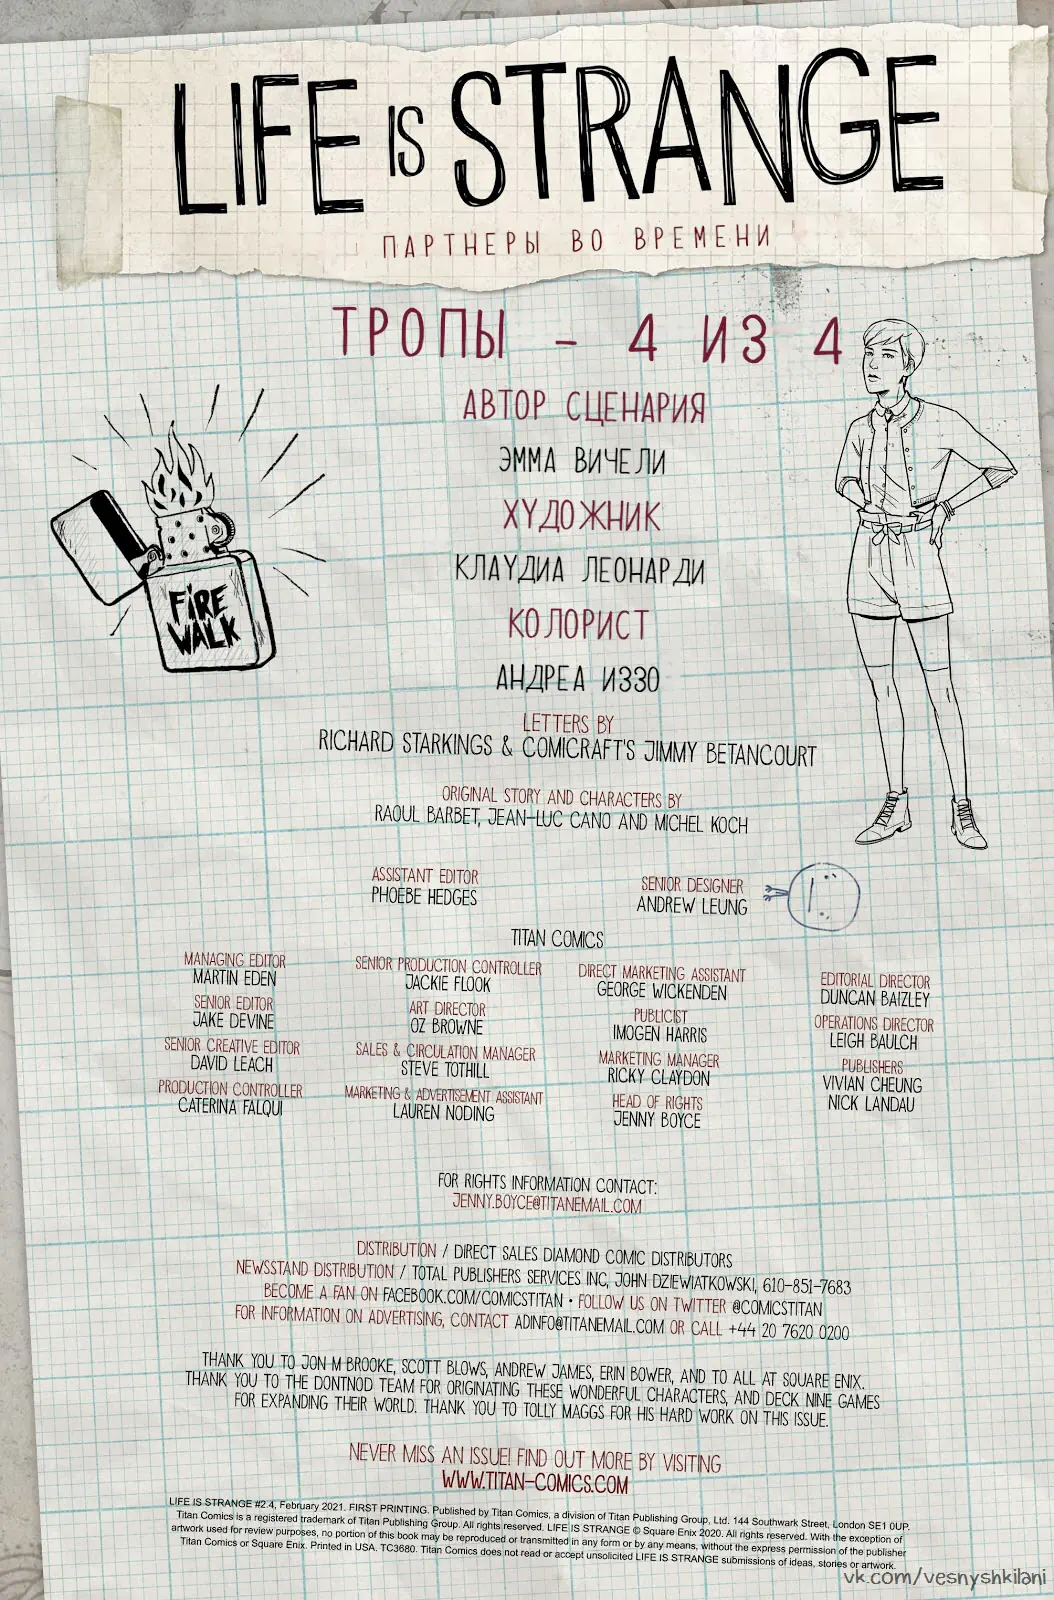 LIFE IS STRANGE
ПАРТНЕРЫ ВО ВРЕМЕНИ
ТРОПЫ - 4 ИЗ 4
АВТОР СЦЕНАРИЯ
ЭММА ВИЧЕЛИ
ХУДОЖНИК
КЛАУДИА ЛЕОНАРДИ
КОЛОРИСТ
АНДРЕА ИЗЗО
FIRE
WALK
LETTERS BY
RICHARD STARKINGS & COMICRAFT'S JIMMY BETANCOURT
ORIGINAL STORY AND CHARACTERS BY
RAOUL BARBET, JEAN-LUC CANO AND MICHEL KOCH
ASSISTANT EDITOR
PHOEBE HEDGES
SENIOR DESIGNER
ANDREW LEUNG
TITAN COMICS
MANAGING EDITOR
MARTIN EDEN
SENIOR EDITOR
JAKE DEVINE
SENIOR CREATIVE EDITOR
DAVID LEACH
PRODUCTION CONTROLLER
CATERINA FALQUI
SENIOR PRODUCTION CONTROLLER
JACKIE FLOOK
ART DIRECTOR
OZ BROWNE
SALES & CIRCULATION MANAGER
STEVE TOTHILL
MARKETING & ADVERTISEMENT ASSISTANT
LAUREN NODING
DIRECT MARKETING ASSISTANT
GEORGE WICKENDEN
PUBLICIST
IMOGEN HARRIS
MARKETING MANAGER
RICKY CLAYDON
HEAD OF RIGHTS
JENNY BOYCE
EDITORIAL DIRECTOR
DUNCAN BAIZLEY
OPERATIONS DIRECTOR
LEIGH BAULCH
PUBLISHERS
VIVIAN CHEUNG
NICK LANDAU
FOR RIGHTS INFORMATION CONTACT:
JENNY.BOYCE@TITANEMAIL.COM
DISTRIBUTION / DIRECT SALES DIAMOND COMIC DISTRIBUTORS
NEWSSTAND DISTRIBUTION / TOTAL PUBLISHERS SERVICES INC, JOHN DZIEWIATKOWSKI, 610-851-7683
BECOME A FAN ON FACEBOOK.COM/COMICSTITAN • FOLLOW US ON TWITTER @COMICSTITAN
FOR INFORMATION ON ADVERTISING, CONTACT ADINFO@TITANEMAIL.COM OR CALL +44 20 7620 0200
THANK YOU TO JON M BROOKE, SCOTT BLOWS, ANDREW JAMES, ERIN BOWER, AND TO ALL AT SQUARE ENIX.
THANK YOU TO THE DONTNOD TEAM FOR ORIGINATING THESE WONDERFUL CHARACTERS, AND DECK NINE GAMES
FOR EXPANDING THEIR WORLD. THANK YOU TO TOLLY MAGGS FOR HIS HARD WORK ON THIS ISSUE.
NEVER MISS AN ISSUE! FIND OUT MORE BY VISITING
WWW.TITAN-COMICS.COM
LIFE IS STRANGE #2.4, February 2021. FIRST PRINTING. Published by Titan Comics, a division of Titan Publishing Group, Ltd. 144 Southwark Street, London SE1 0UP.
Titan Comics is a registered trademark of Titan Publishing Group. All rights reserved. LIFE IS STRANGE © Square Enix 2020. All rights reserved. With the exception of
artwork used for review purposes, no portion of this book may be reproduced or transmitted in any form or by any means, without the express permission of the publisher
Titan Comics or Square Enix. Printed in USA. TC3680. Titan Comics does not read or accept unsolicited LIFE IS STRANGE submissions of ideas, stories or artwork.
vk.com/vesnyshkilani